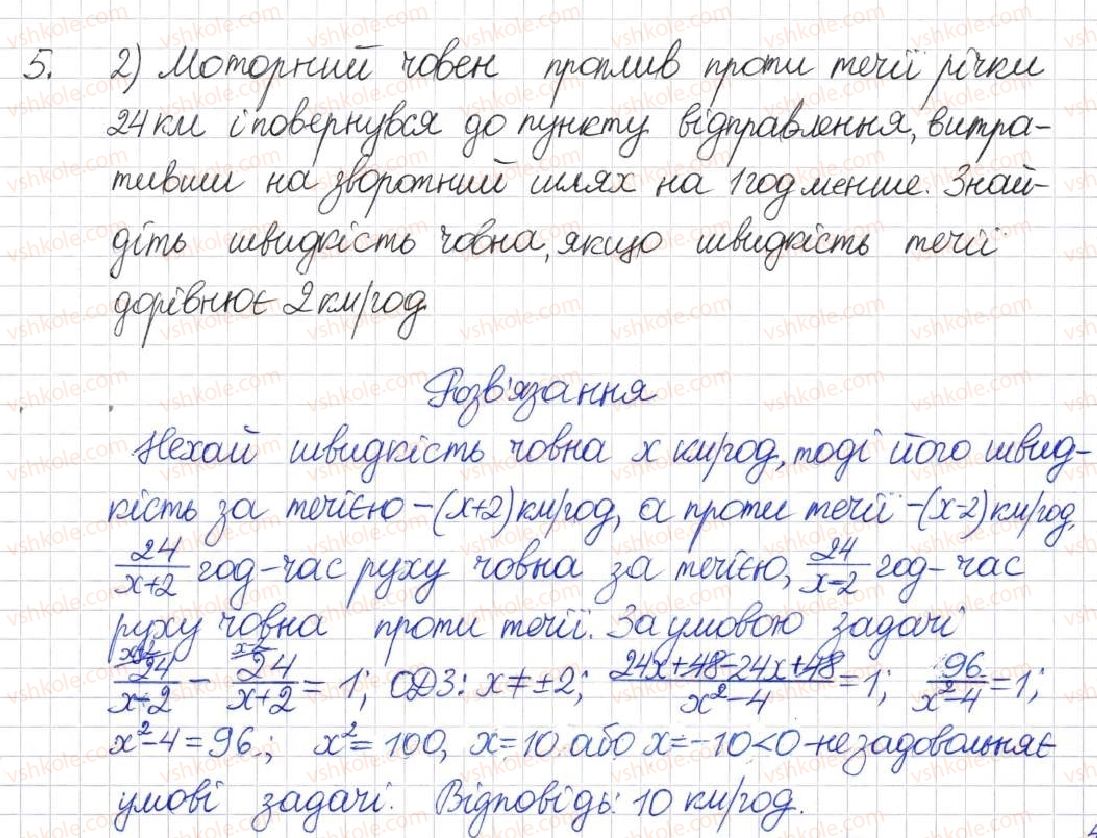 5. 2) Моторний човен проплив проти течії річки
24 км і повернувся до пункту відправлення, витра-
тивши на зворотний шлях на 1 год менше. Знай-
діть швидкість човна, якщо швидкість течії
дорівнює 2 км/год
Розв'язання
Нехай швидкість човна x км/год, тоді його швид-
кість за течією – (x+2) км/год, а проти течії – (x-2) км/год.
24/(x+2) год – час руху човна за течією, 24/(x-2) год – час
руху човна проти течії. За умовою задачі
x+2 x-2
24/(x-2) - 24/(x+2) = 1; ОДЗ: x≠±2; (24x+48-24x+48)/(x²-4) = 1; 96/(x²-4) = 1;
x²-4=96; x²=100, x=10 або x=-10<0 - не задовольняє
умові задачі. Відповідь: 10 км/год.
vshkole.com